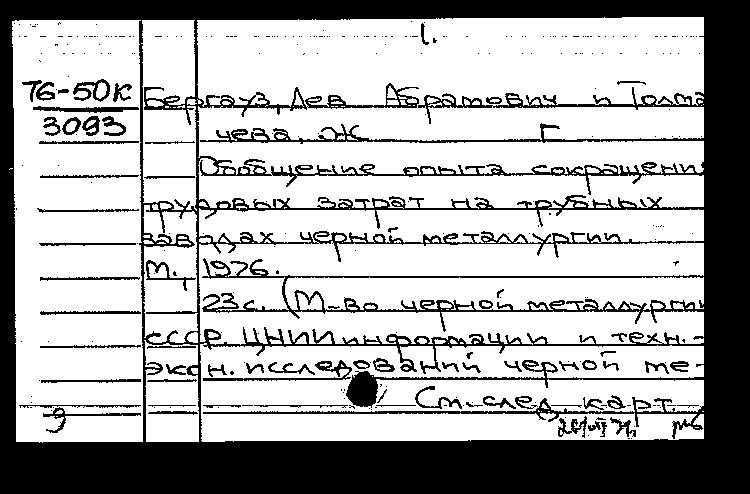 1.
76-50к Бергауз, Лев Абрамович и Толма
3093 чева, Ж Г
Обобщение опыта сокращения
трудовых затрат на трубных
заводах черной металлургии.
М., 1976.
23 с. (М-во черной металлургии
СССР. ЦНИИ информации и техн.-
экон. исследований черной ме-
См. след. карт.